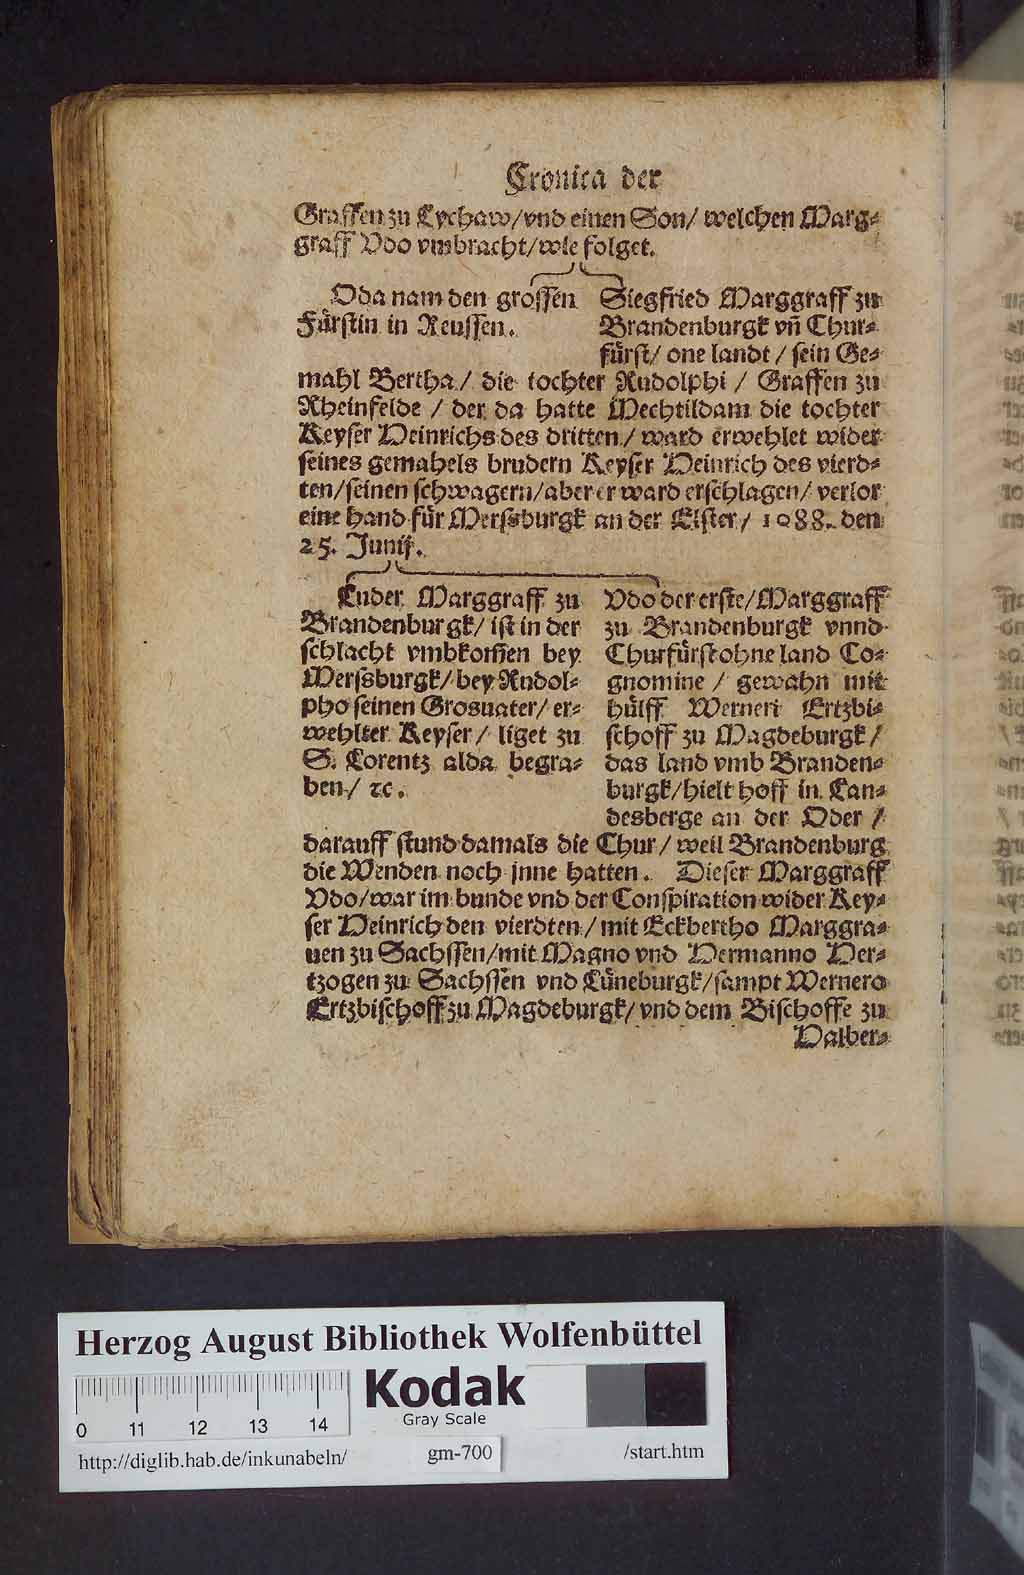 Cronica der
Graffen zu Lychaw/vnd einen Son/ welchen Marg⸗
graff Vdo vmbracht/wie folget.
Oda nam den grossen
Fürstin in Reussen.
Siegfried Marggraff zu
Brandenburgk vn̄ Chur⸗
fürst/ one landt / sein Ge⸗
mahl Bertha / die tochter Rudolphi / Graffen zu
Rheinfelde / der da hatte Mechtildam die tochter
Keyser Heinrichs des dritten / ward erwehlet wider
seines gemahels brudern Keyser Heinrich des vierd⸗
ten/seinen schwagern/aber er ward erschlagen/ verlor
eine hand für Merssburgk an der Elster / 1088. den
25. Junij.
Luder Marggraff zu
Brandenburgk/ ist in der
schlacht vmbkom̄en bey
Merssburgk/ bey Rudol⸗
pho seinen Grosuater/ er⸗
wehlter Keyser / liget zu
S. Lorentz alda begra⸗
ben / ꝛc.
Vdo der erste/Marggraff
zu Brandenburgk vnnd
Churfürst ohne land Co⸗
gnomine / gewahn mit
hülff Werneri Ertzbi⸗
schoff zu Magdeburgk /
das land vmb Branden⸗
burgk/hielt hoff in Lan⸗
desberge an der Oder /
darauff stund damals die Chur / weil Brandenburg
die Wenden noch jnne hatten. Dieser Marggraff
Vdo/war im bunde vnd der Conspiration wider Key⸗
ser Heinrich den vierdten / mit Eckbertho Marggra⸗
uen zu Sachssen/mit Magno vnd Hermanno Her⸗
tzogen zu Sachssen vnd Lüneburgk/sampt Wernero
Ertzbischoff zu Magdeburgk/ vnd dem Bischoffe zu
Halber⸗
Herzog August Bibliothek Wolfenbüttel
0 11 12 13 14
Kodak
Gray Scale
http://diglib.hab.de/inkunabeln/ gm-700 /start.htm